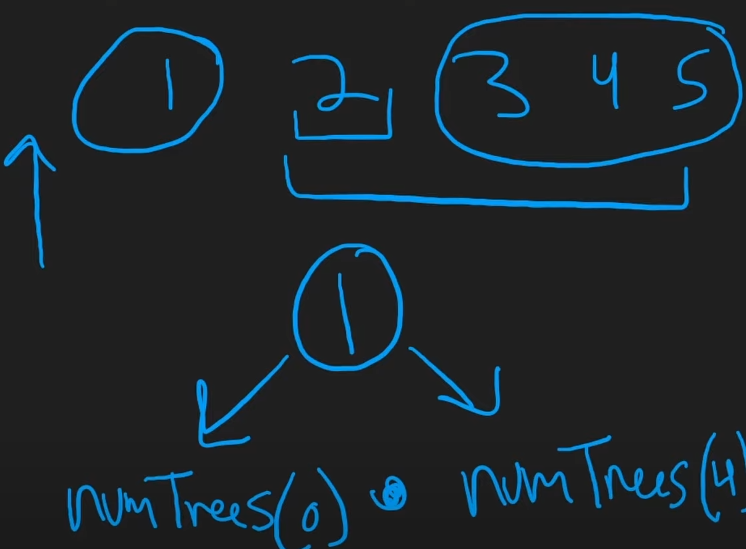 1 2 3 4 5
1
numTrees(0) • numTrees(4)